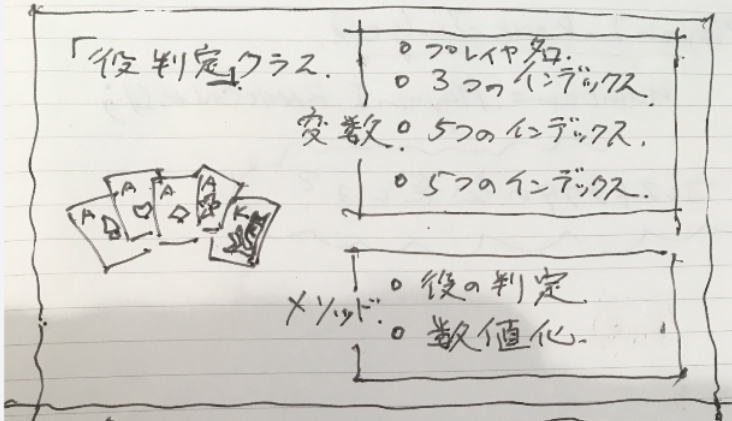 「役判定」クラス.
変数.
○ プレイヤ名.
○ 3つのインデックス.
○ 5つのインデックス.
○ 5つのインデックス.
A A A A K
メソッド.
○ 役の判定
○ 数値化.